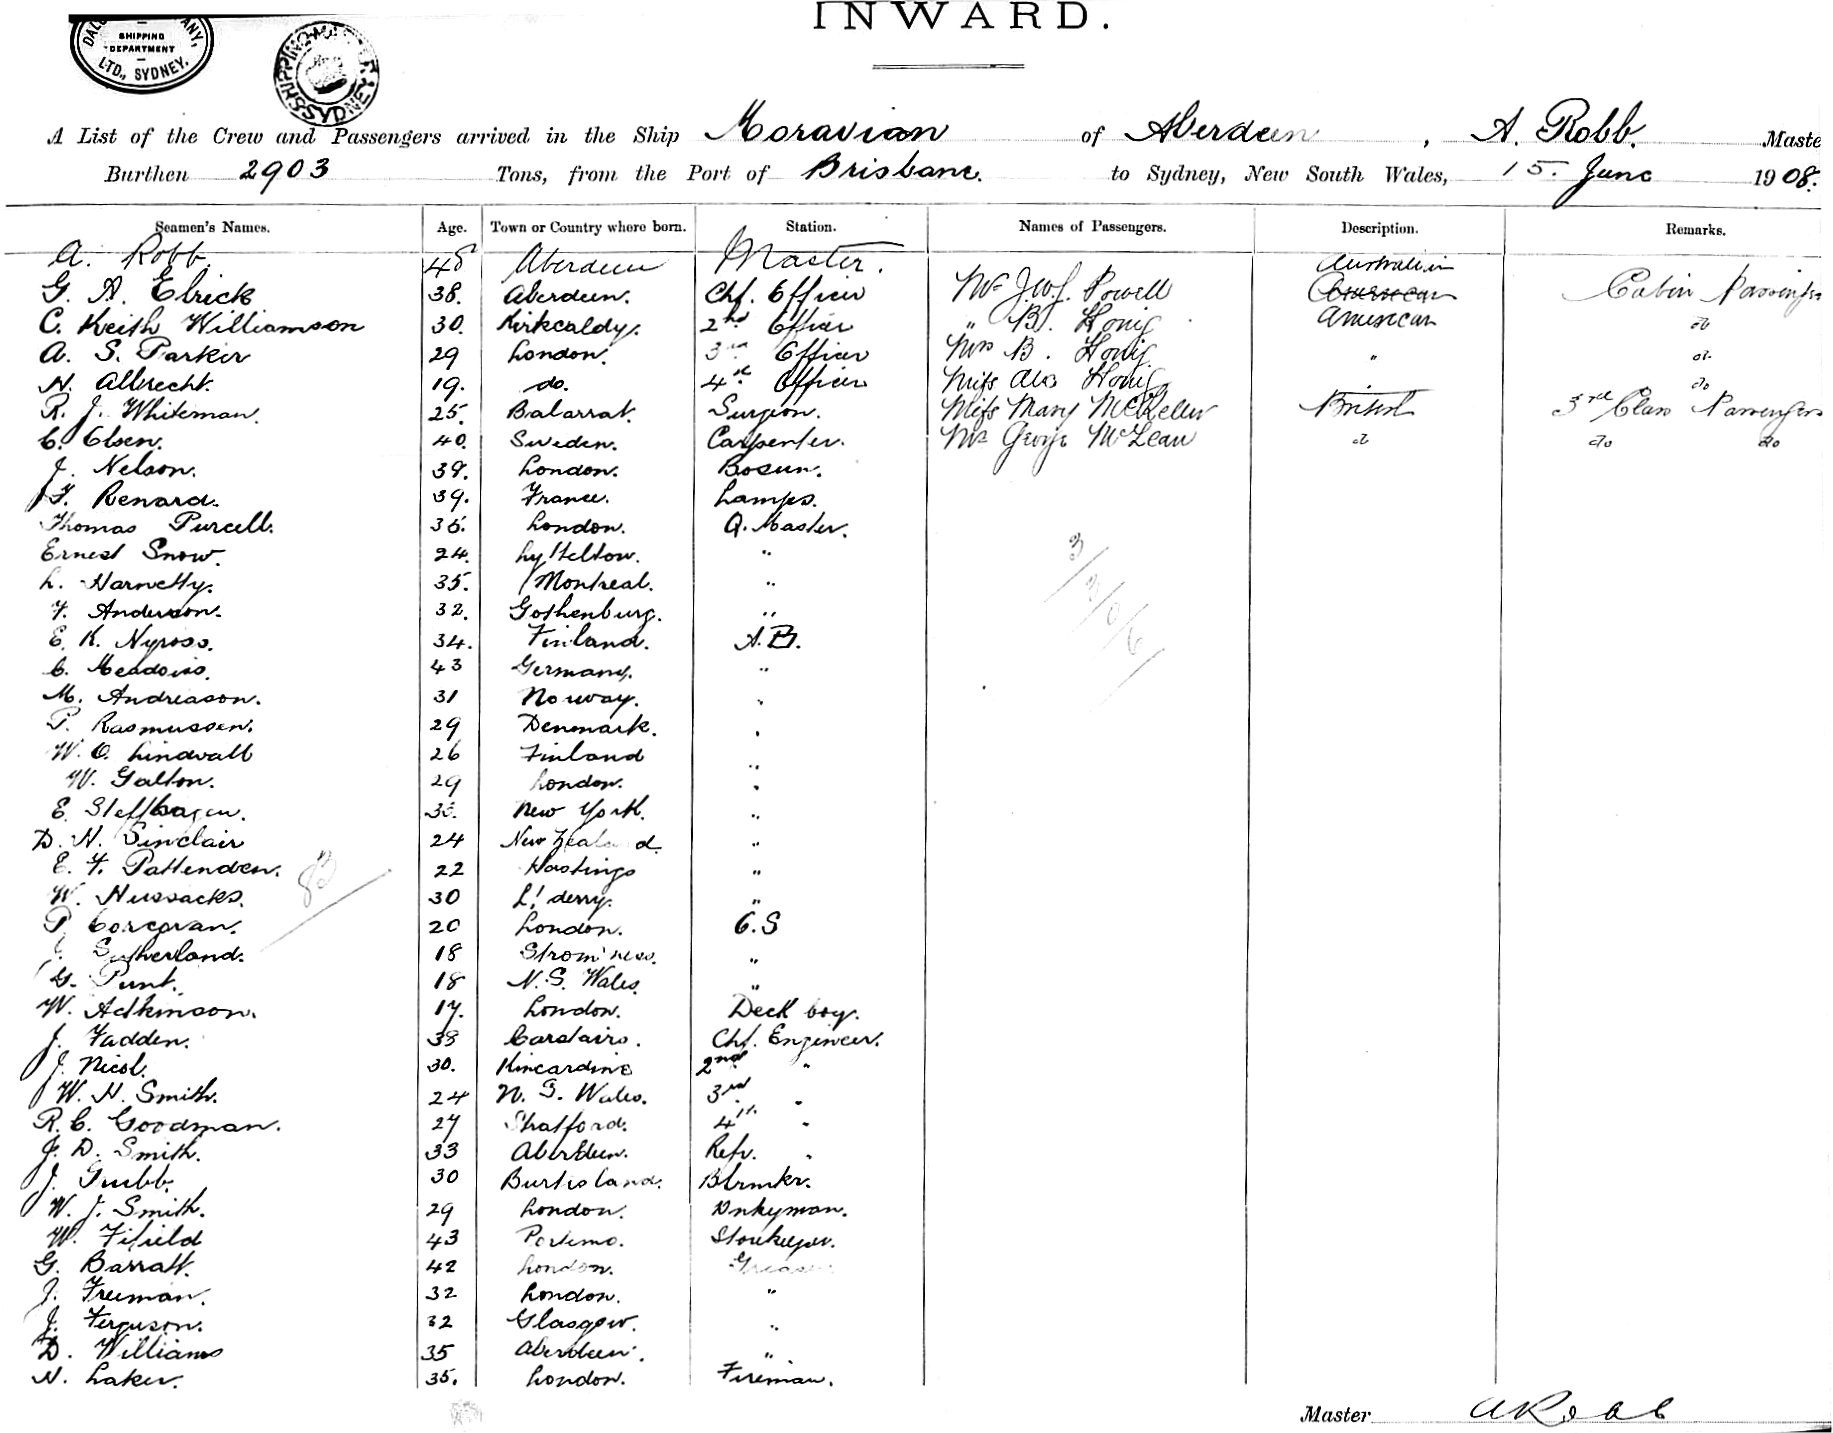 INWARD.
SHIPPING
DEPARTMENT
LTD., SYDNEY.
SYDNEY
A List of the Crew and Passengers arrived in the Ship Moravian of Aberdeen, A. Robb. Maste
Burthen 2903 Tons, from the Port of Brisbane. to Sydney, New South Wales, 15. June 1908.
Seamen's Names. Age. Town or Country where born. Station. Names of Passengers. Description. Remarks.
A. Robb. 48 Aberdeen Master. Australian
G. A. Elrick 38. Aberdeen. Chf. Officer Mr J.W.J. Powell American Cabin Passengers
C. Keith Williamson 30. Kirkcaldy. 2nd Officer " B. Honig American do
A. S. Parker 29 London. 3rd Officer Mrs B. Honig " do
H. Albrecht. 19. do. 4th Officer Miss Honig do
R. J. Whiteman. 25. Balarrat. Surgeon. Miss Mary McKellar British 3rd Class Passengers
C. Olsen. 40. Sweden. Carpenter. Mr George McLean do do do
J. Nelson. 39. London. Bosun.
F. Renard. 39. France. Lamps.
Thomas Purcell. 36. London. Q. Master.
Ernest Snow. 24. Lyttelton. "
L. Harnetty. 35. Montreal. "
F. Anderson. 32. Gothenburg. "
E. K. Nyross. 34. Finland. A.B.
C. Meadows. 43 Germany. "
M. Andreason. 31 Norway. "
P. Rasmussen. 29 Denmark. "
W. O. Lindvall 26 Finland "
W. Galton. 29 London. "
E. Steffhagen. New York. "
D. H. Sinclair 24 New Zealand. "
E. F. Pattenden. 22 Hastings "
W. Hussacks. 30 L'derry. "
P. Corcoran. 20 London. O.S
Sutherland. 18 Strom'ness. "
G. Punt. 18 N.S. Wales. "
W. Adkinson. 17. London. Deck boy.
J. Fadden. 38 Carstairs. Chf. Engineer.
J. Nicol. 30. Kincardine 2nd "
W. H. Smith. 24 N. S. Wales. 3rd "
R. C. Goodman. 27 Stratford. 4th "
J. D. Smith. 33 Aberdeen. Refr. "
J. Gubb. 30 Burtisland. Blrmkr.
W. J. Smith. 29 London. Dnkyman.
W. Fifield 43 Portsmo. Storekeeper.
G. Barratt. 42 London. Greaser
J. Freeman. 32 London. "
J. Ferguson. 32 Glasgow. "
D. Williams 35 Aberdeen. "
H. Laker. 35. London. Fireman.
Master A Robb